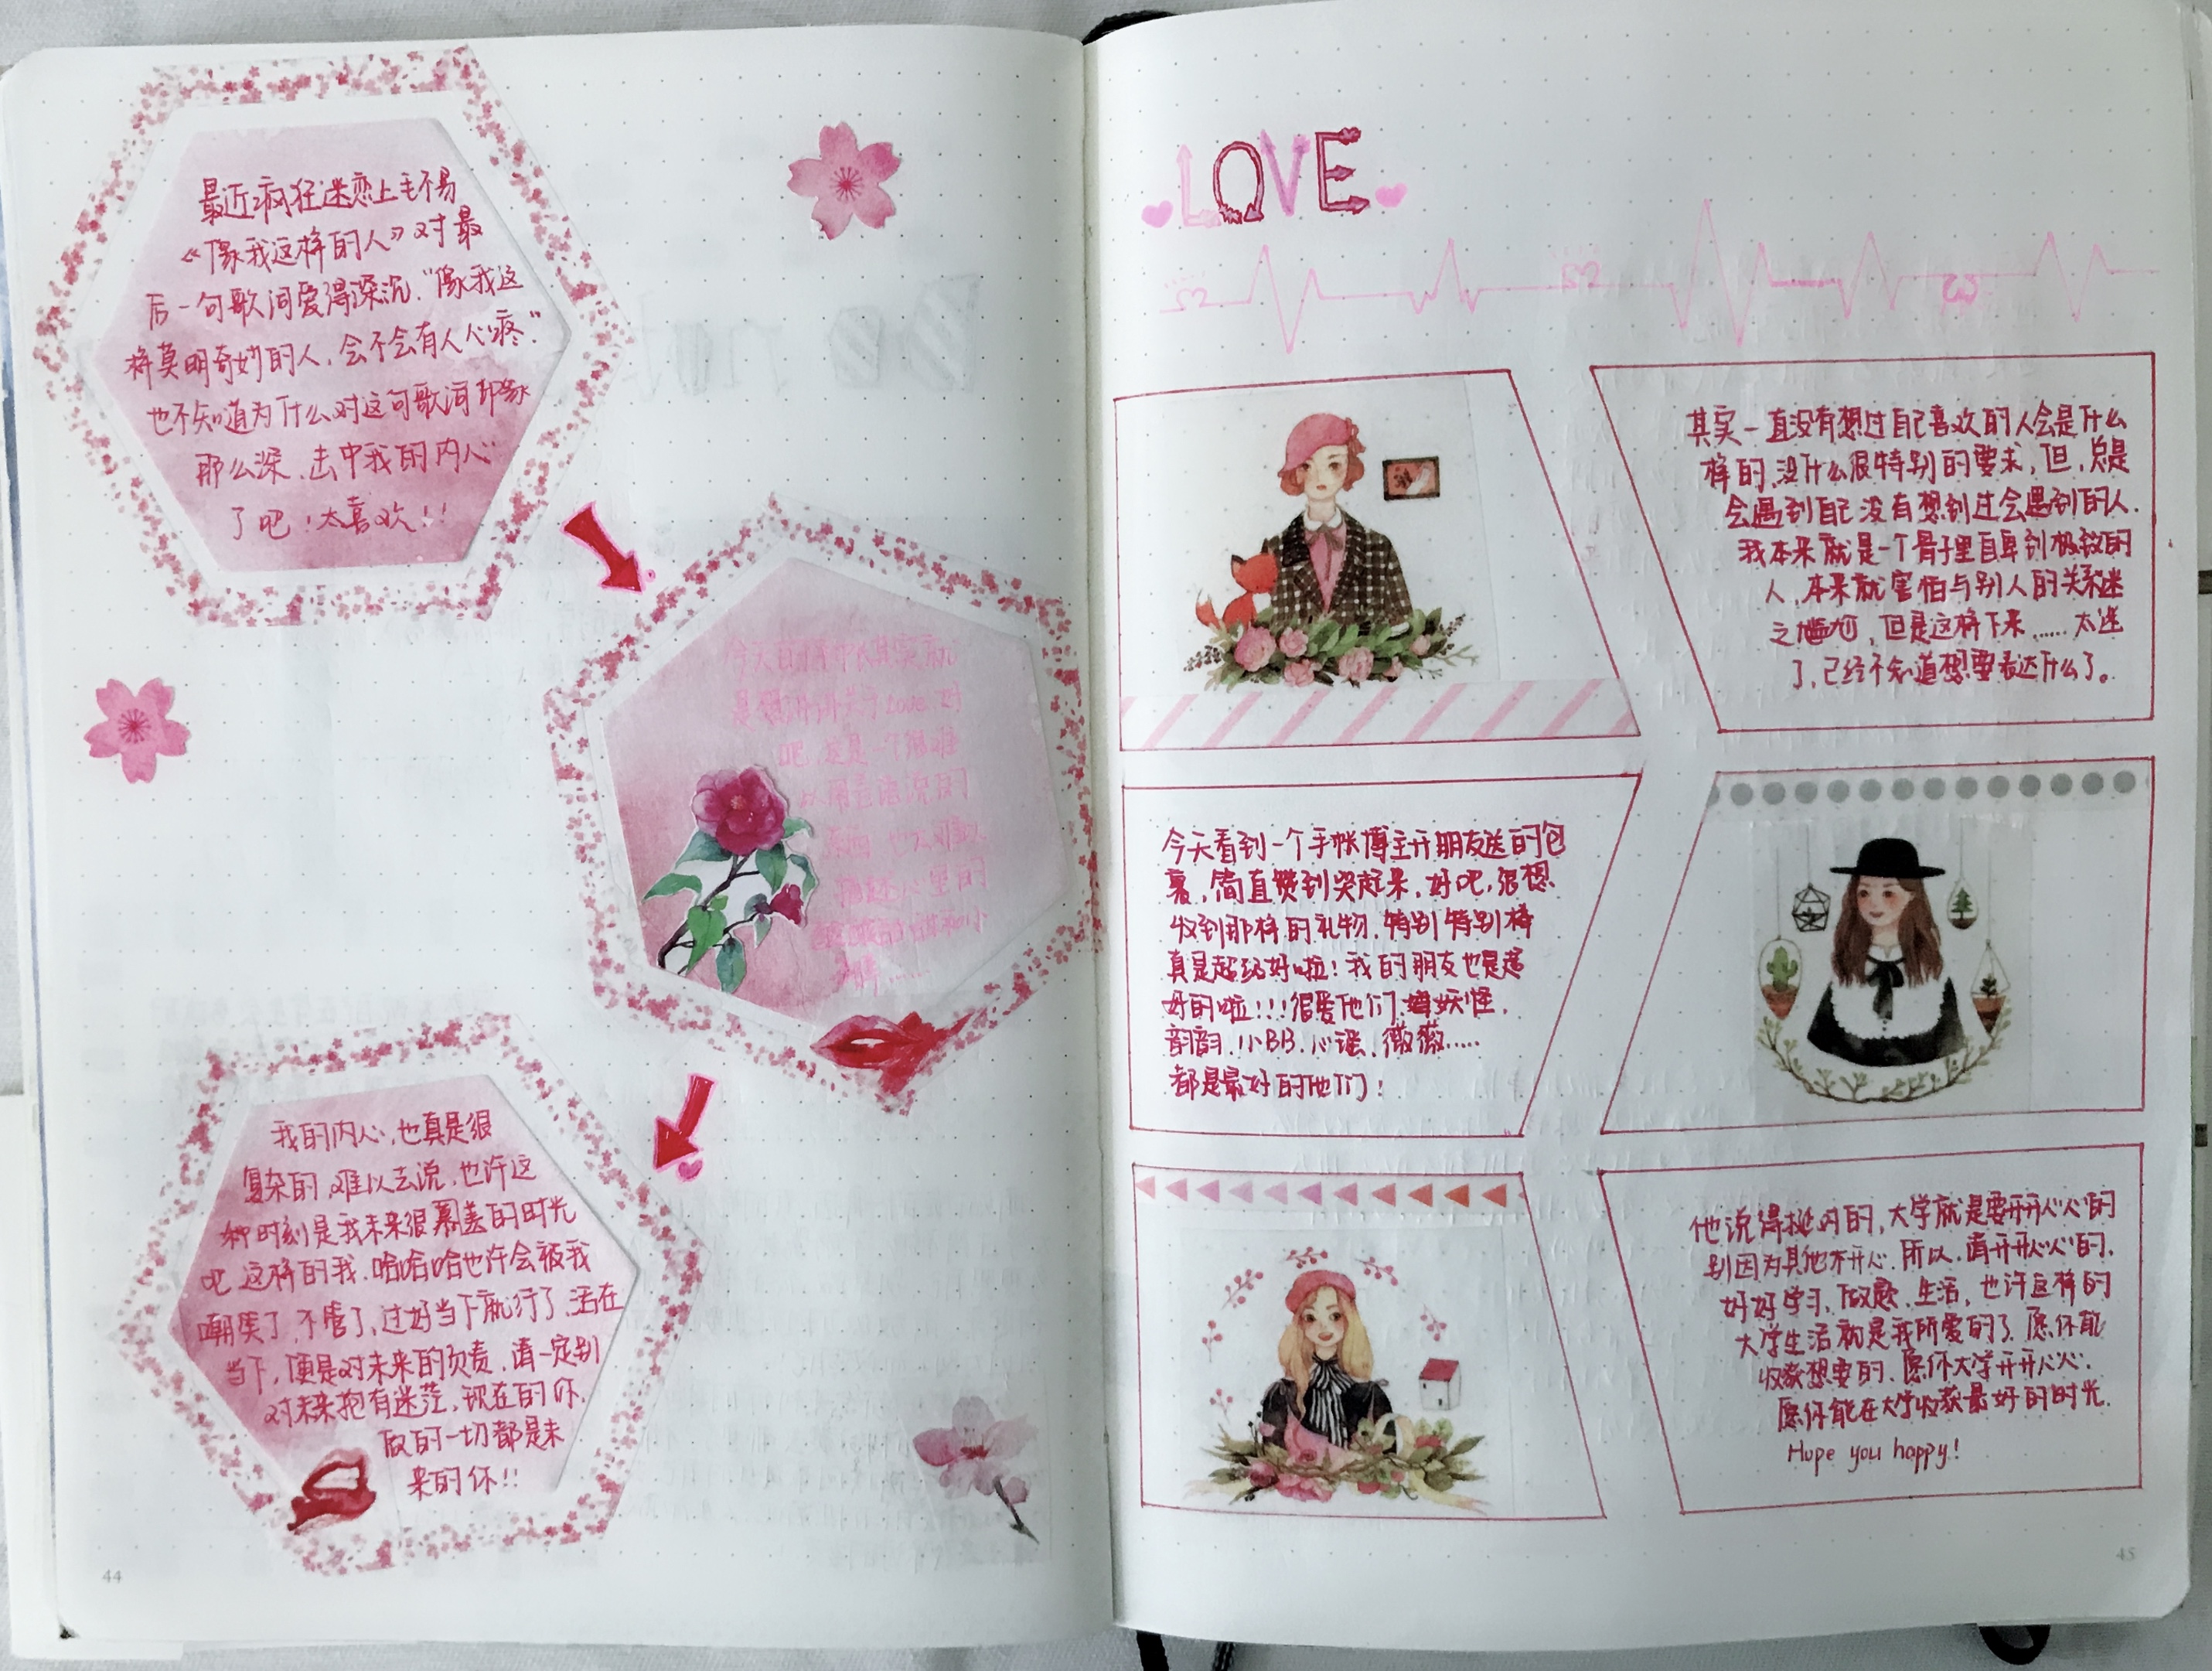 最近疯狂迷恋上毛不易
《像我这样的人》对最
后一句歌词爱得深沉.“像我这
样莫明奇妙的人,会不会有人心疼.”
也不知道为什么对这句歌词印象
那么深.击中我的内心
了吧!太喜欢!!
今天的手帐其实就
是想讲讲关于Love.对
吧.这是一个很难
以用言语说的
东西.也太难以
描述心里的
我的内心,也真是很
复杂的,难以去说.也许这
种时刻是我未来很羡慕的时光
吧.这样的我.哈哈哈也许会被我
嘲笑了.不管了,过好当下就行了.活在
当下,便是对未来的负责.请一定别
对未来抱有迷茫,现在的你.
做的一切都是未
来的你!!
44
LOVE
其实一直没有想过自己喜欢的人会是什么
样的,没什么很特别的要求,但,总是
会遇到自己没有想到过会遇到的人.
我本来就是一个骨子里自卑到极致的
人,本来就害怕与别人的关系迷
之尴尬,但是这样下来......太迷
了,已经不知道想要表达什么了。
今天看到一个手帐博主开朋友送的包
裹,简直赞到哭起来,好吧,很想
收到那样的礼物.特别特别棒
真是超级好啦!我的朋友也是超
好的啦!!!很爱他们.妖怪.
韵韵.小BB.心谣.薇薇.....
都是最好的他们!
他说得挺对的,大学就是要开开心心的
别因为其他不开心.所以.请开开心心的.
好好学习,做题.生活,也许这样的
大学生活就是我所爱的了.愿你能
收获想要的.愿你大学开开心心.
愿你能在大学收获最好的时光.
Hope you happy!
45